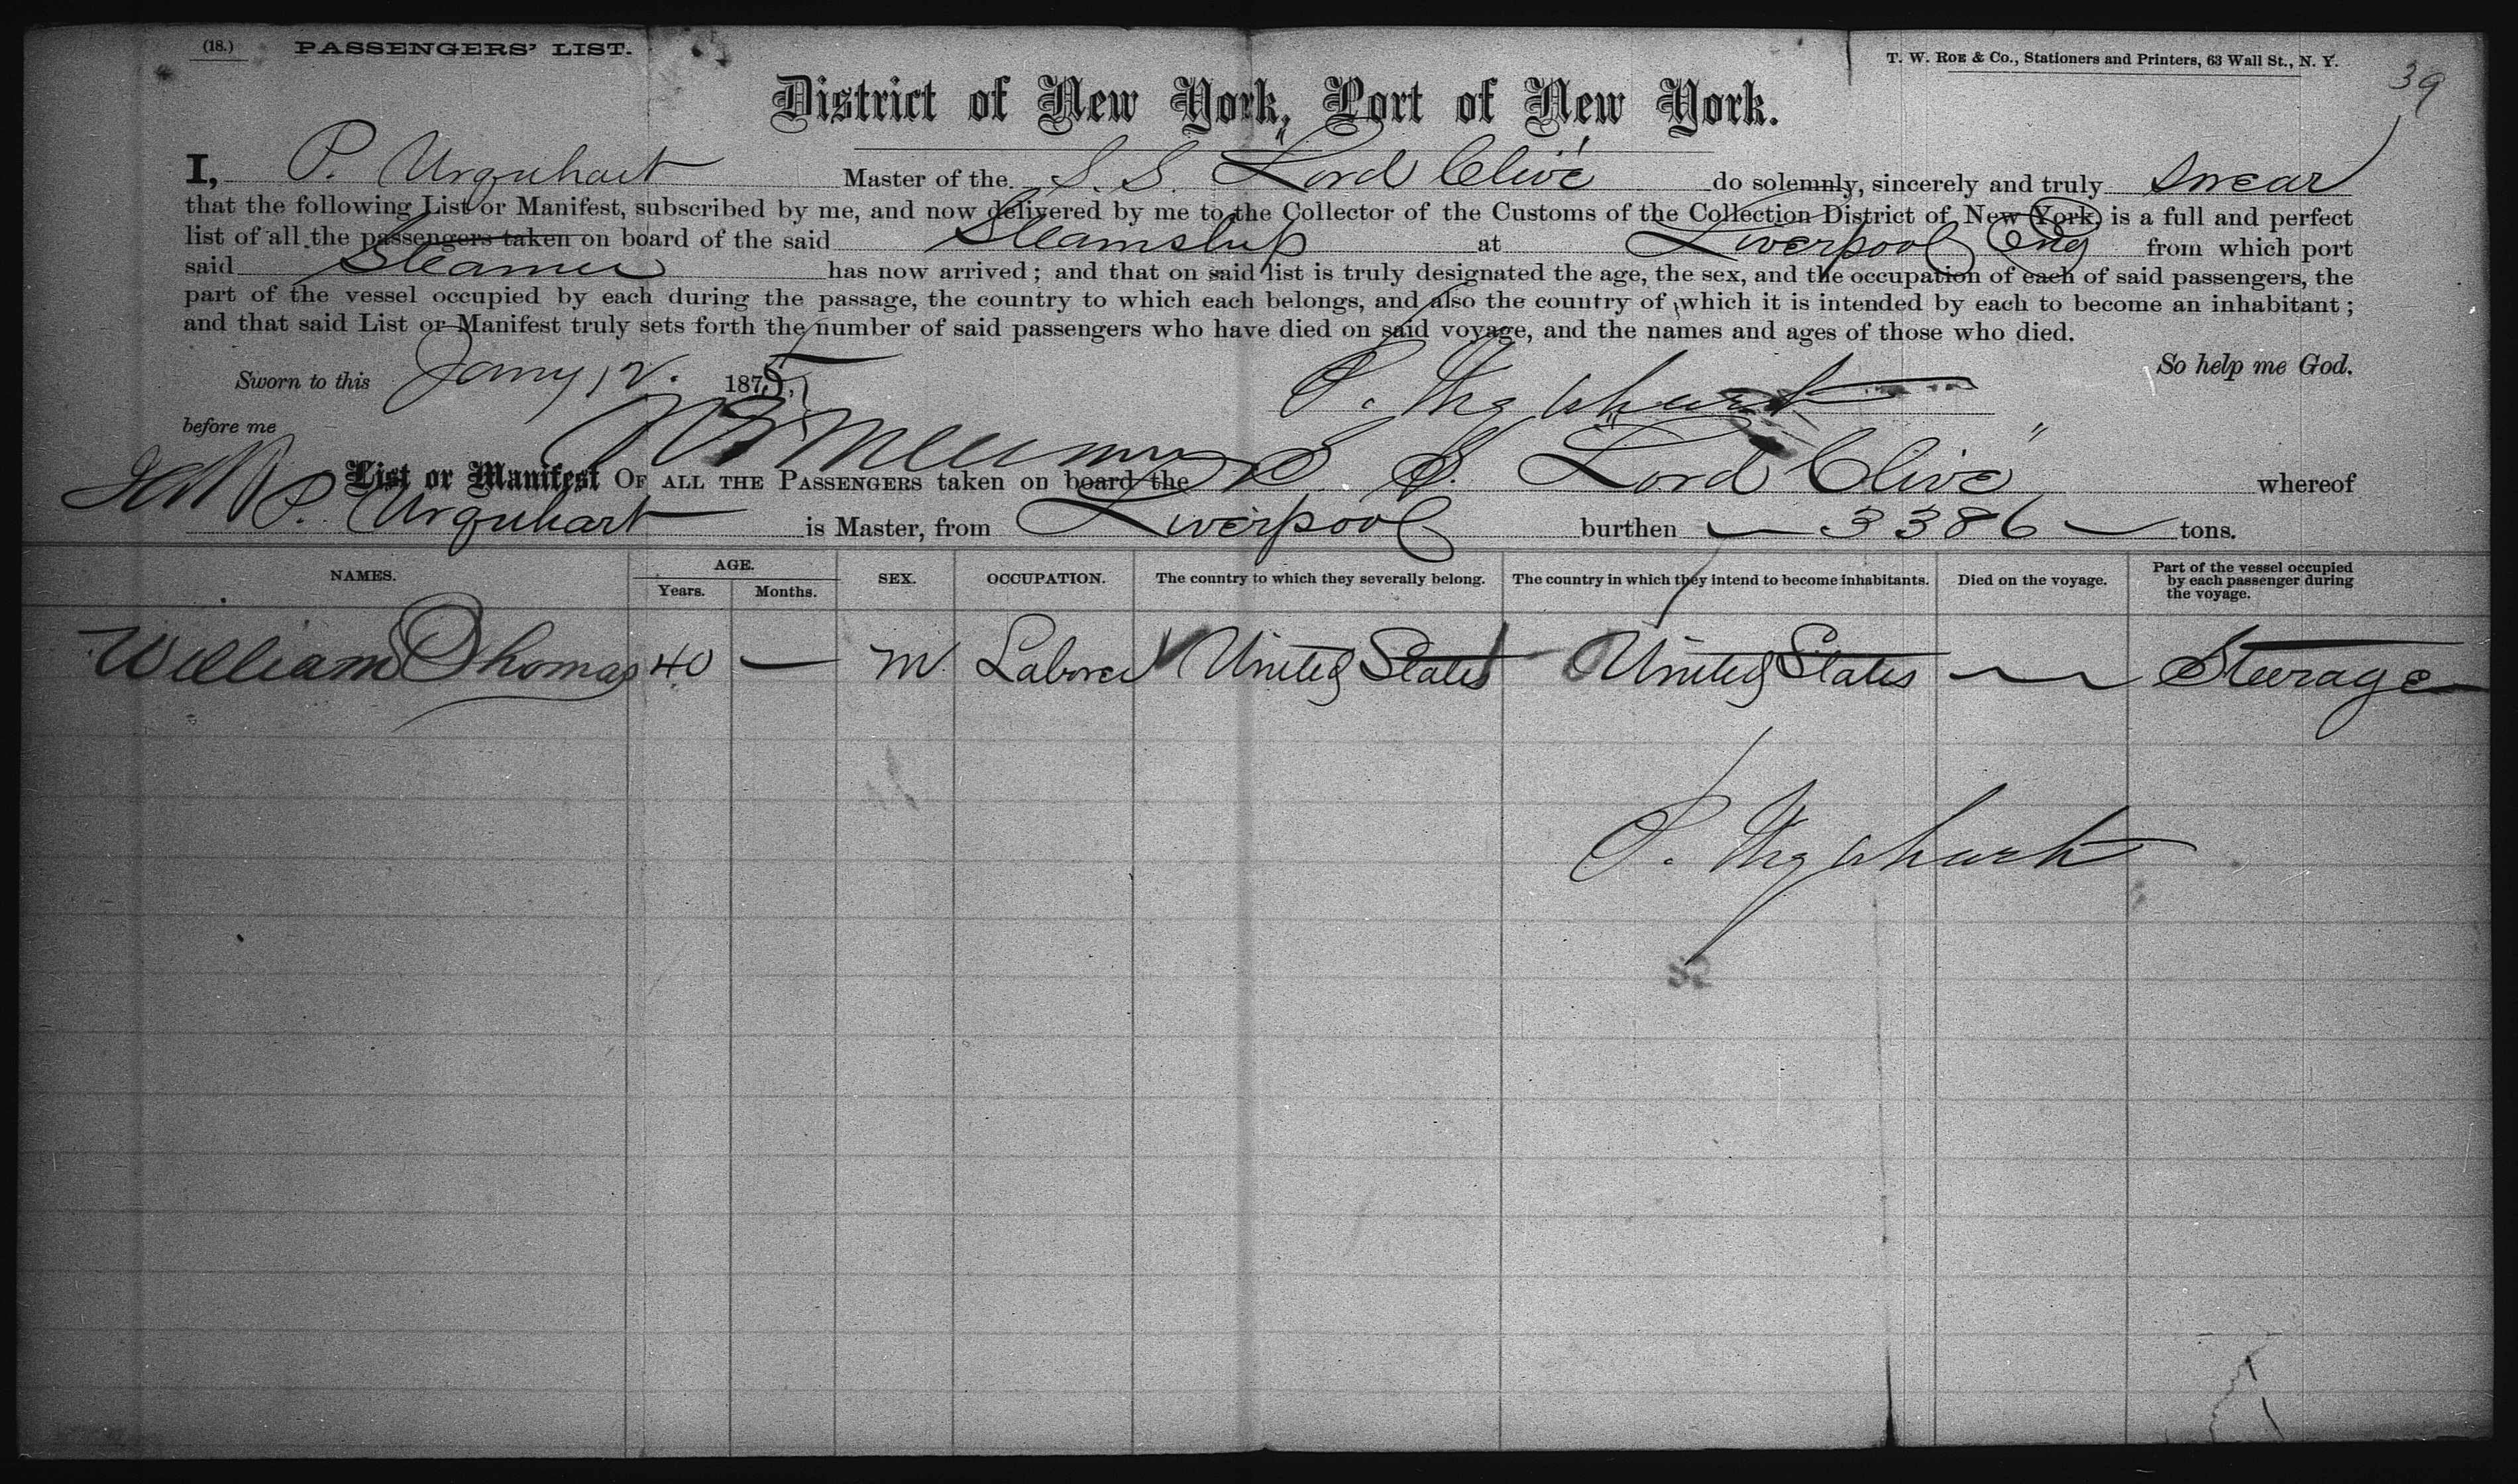 (18.) PASSENGERS' LIST.
T. W. ROE & Co., Stationers and Printers, 63 Wall St., N. Y.
39
District of New York, Port of New York.
I, P. Urquhart Master of the S. S. "Lord Clive" do solemnly, sincerely and truly swear
that the following List or Manifest, subscribed by me, and now delivered by me to the Collector of the Customs of the Collection District of New York, is a full and perfect
list of all the passengers taken on board of the said Steamship at Liverpool Eng from which port
said Steamer has now arrived; and that on said list is truly designated the age, the sex, and the occupation of each of said passengers, the
part of the vessel occupied by each during the passage, the country to which each belongs, and also the country of which it is intended by each to become an inhabitant;
and that said List or Manifest truly sets forth the number of said passengers who have died on said voyage, and the names and ages of those who died.
So help me God.
Sworn to this Jany 12. 1875,
P. Urquhart
before me
List or Manifest OF ALL THE PASSENGERS taken on board the S. S. "Lord Clive" whereof
P. Urquhart is Master, from Liverpool burthen — 3386 — tons.
NAMES. AGE. Years. Months. SEX. OCCUPATION. The country to which they severally belong. The country in which they intend to become inhabitants. Died on the voyage. Part of the vessel occupied by each passenger during the voyage.
William Thomas 40 — M Laborer United States United States — Steerage
P. Urquhart